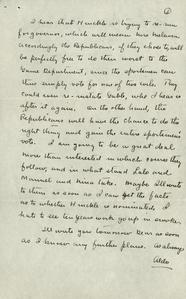 I hear that Hinkle is trying to re-run
for governor, which will mean two Malaven
Accordingly the Republicans, if they choose to, will
be perfectly free to do their worst to the
Game Department, since the sportsmen can
then simply vote for one of two evils. They
could even re-instate Webb, who I hear is
after it again. On the other hand, the
Republicans will have the chance to do the
right thing and gain the entire sportsmen's
vote. I am going to be a great deal
more than interested in which course they
follow, and in what stand Lalo and
Manuel and Nina take. Maybe Ill write
to them as soon as I can get the facts
as to whether Hinkle is nominated. I
hate to see ten years work go up in smoke.
Ill write you tomorrow dear as soon
as I know any further plans. As always
Aldo